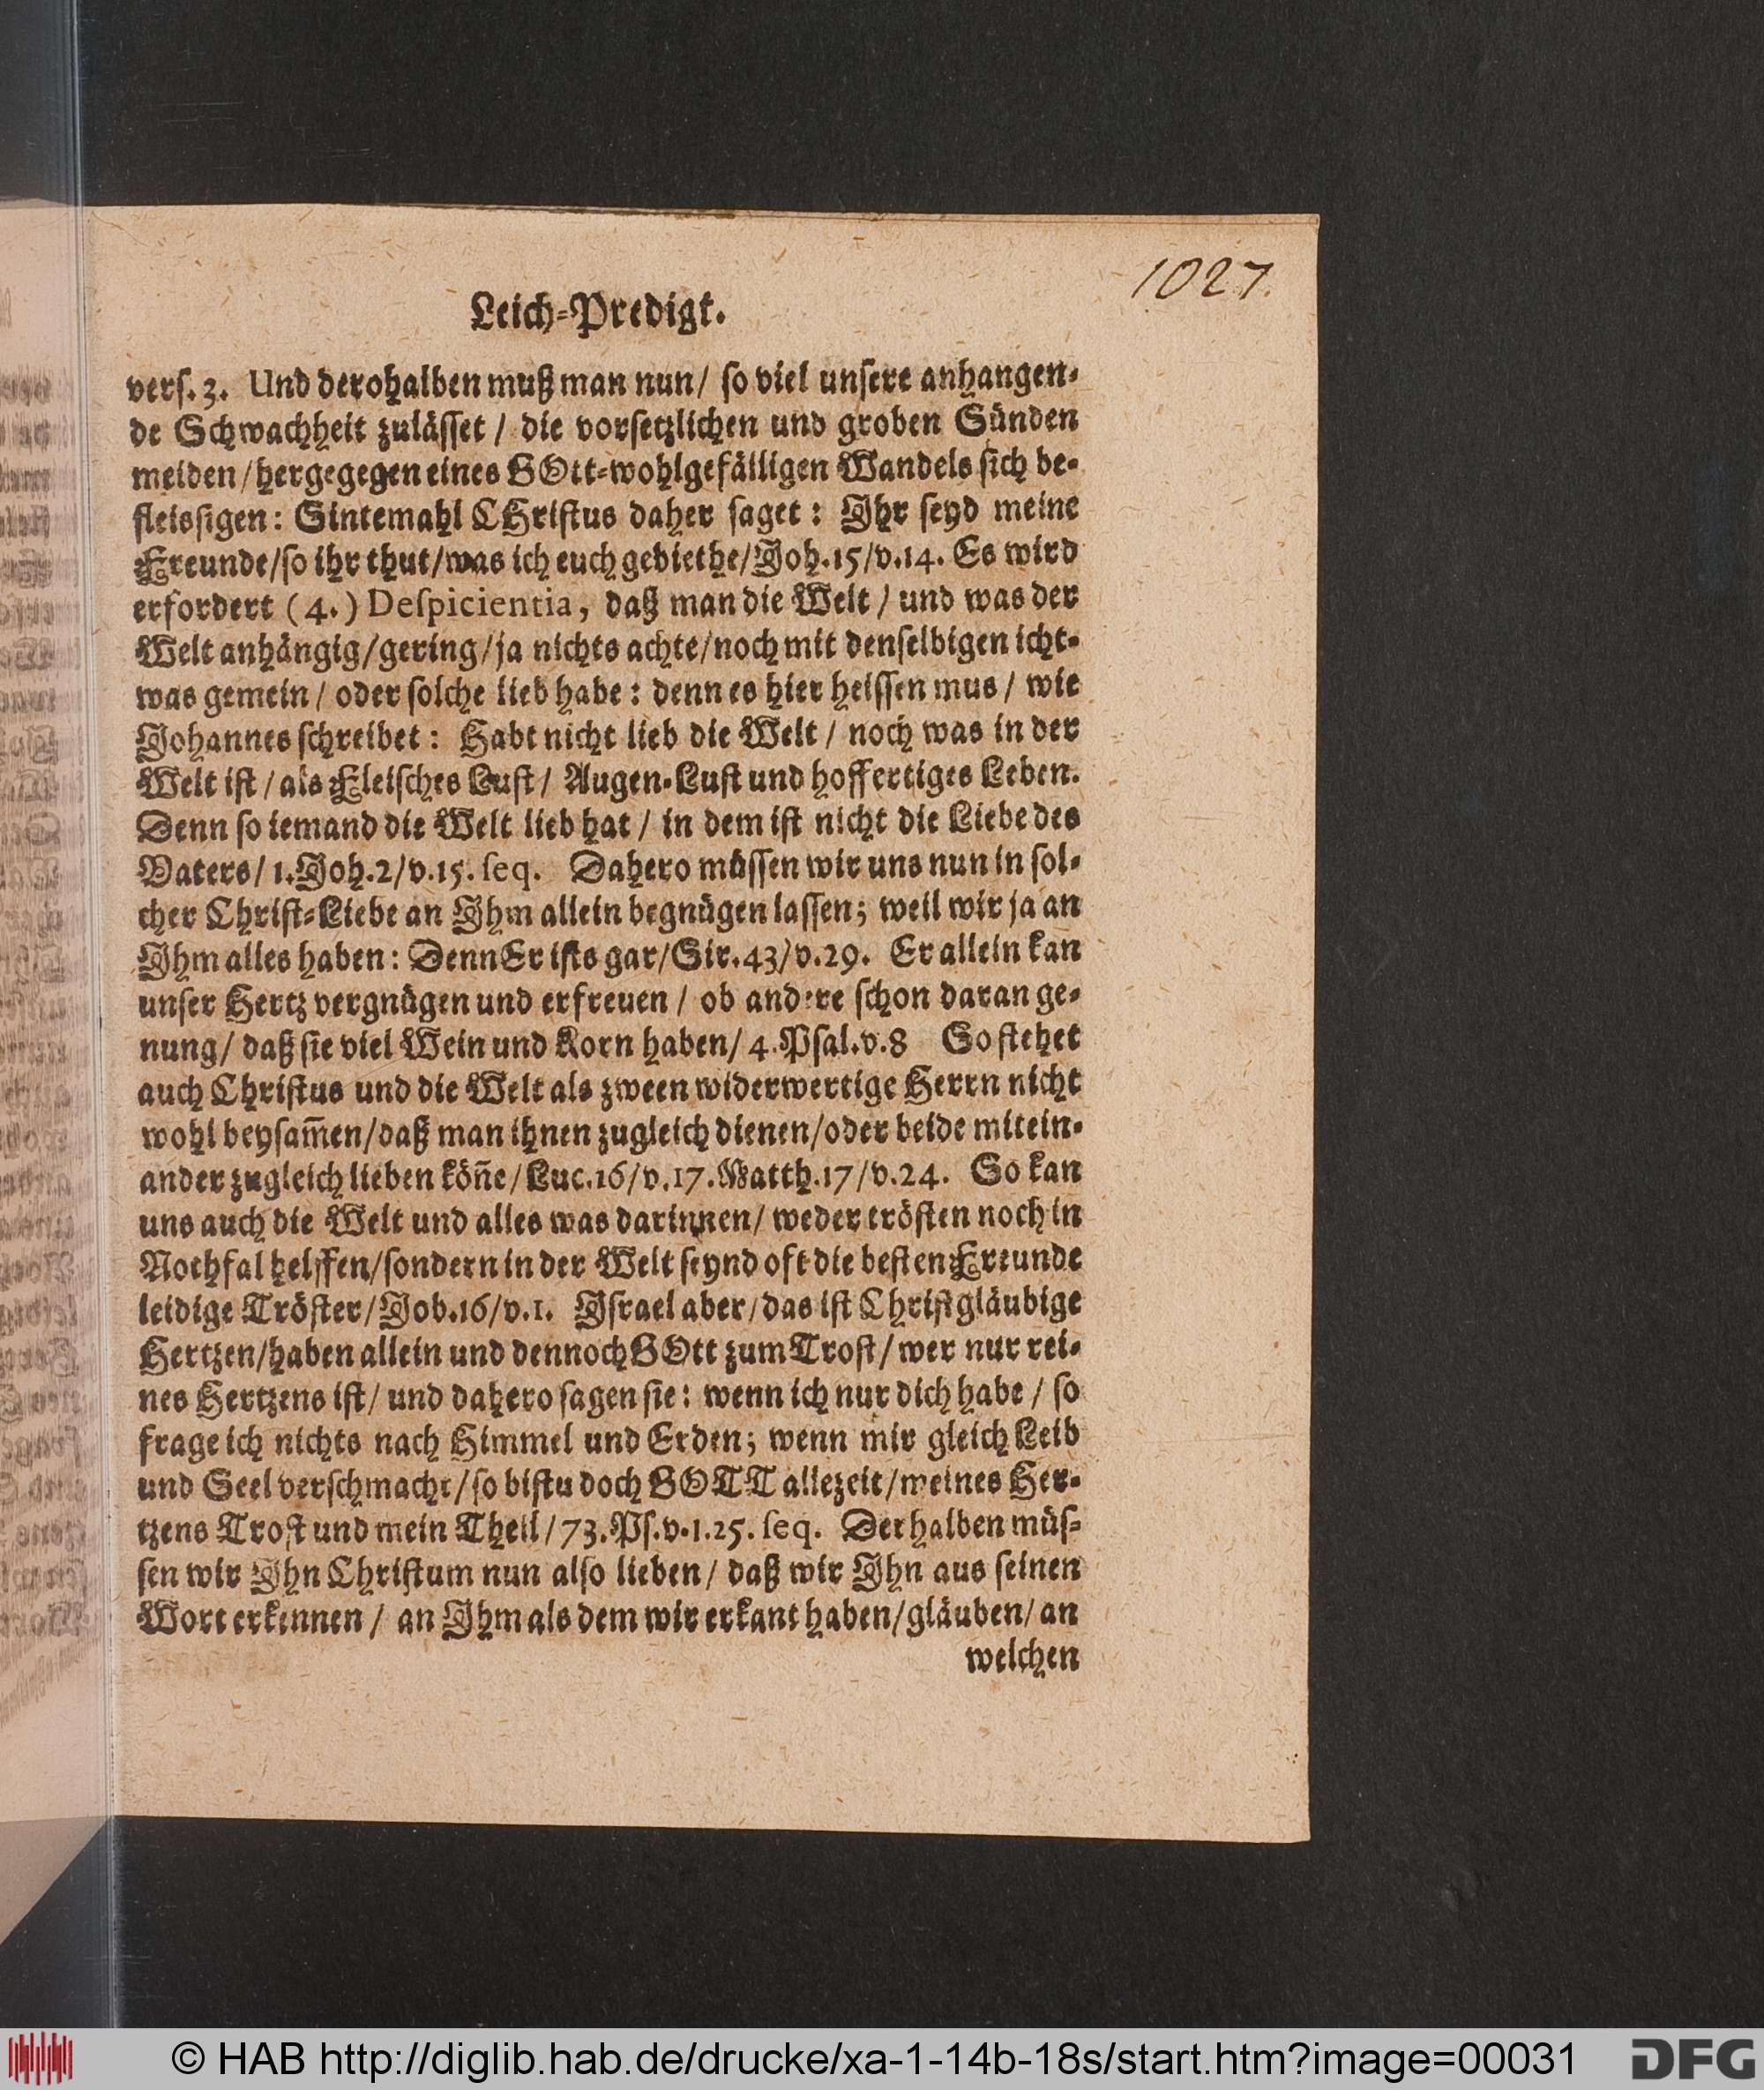 1027.
Leich-Predigt.
verſ. 3. Und derohalben muß man nun/ ſo viel unſere anhangen-
de Schwachheit zuläſſet / die vorſetzlichen und groben Sünden
meiden/hergegegen eines GOtt-wohlgefälligen Wandels ſich be-
fleisſigen: Sintemahl CHriſtus daher ſaget: Ihr ſeyd meine
Freunde/ſo ihr thut/was ich euch gebiethe/Joh.15/v.14. Es wird
erfordert (4.) Deſpicientia, daß man die Welt / und was der
Welt anhängig/gering/ja nichts achte/noch mit denſelbigen icht-
was gemein / oder ſolche lieb habe: denn es hier heiſſen mus / wie
Johannes ſchreibet: Habt nicht lieb die Welt / noch was in der
Welt iſt / als Fleiſches Luſt/ Augen-Luſt und hoffertiges Leben.
Denn ſo iemand die Welt lieb hat / in dem iſt nicht die Liebe des
Vaters/ 1.Joh.2/v.15. ſeq. Dahero müſſen wir uns nun in ſol-
cher Chriſt-Liebe an Ihm allein begnügen laſſen; weil wir ja an
Ihm alles haben: Denn Er iſts gar/Sir.43/v.29. Er allein kan
unſer Hertz vergnügen und erfreuen / ob andere ſchon daran ge-
nung/ daß ſie viel Wein und Korn haben/ 4.Pſal.v.8 So ſtehet
auch Chriſtus und die Welt als zween widerwertige Herrn nicht
wohl beyſam̃en/daß man ihnen zugleich dienen/oder beide mitein-
ander zugleich lieben köñe/Luc.16/v.17.Matth.17/v.24. So kan
uns auch die Welt und alles was darinnen/ weder tröſten noch in
Nothfal helffen/ſondern in der Welt ſeynd oft die beſten Freunde
leidige Tröſter/Job.16/v.1. Iſrael aber/das iſt Chriſtgläubige
Hertzen/haben allein und dennoch GOtt zum Troſt/wer nur rei-
nes Hertzens iſt/ und dahero ſagen ſie: wenn ich nur dich habe / ſo
frage ich nichts nach Himmel und Erden; wenn mir gleich Leib
und Seel verſchmacht/ſo biſtu doch GOTT allezeit/meines Her-
tzens Troſt und mein Theil/73.Pſ.v.1.25. ſeq. Derhalben müſ-
ſen wir Ihn Chriſtum nun alſo lieben/ daß wir Ihn aus ſeinen
Wort erkennen / an Ihm als dem wir erkant haben/gläuben/ an
welchen
© HAB http://diglib.hab.de/drucke/xa-1-14b-18s/start.htm?image=00031
DFG